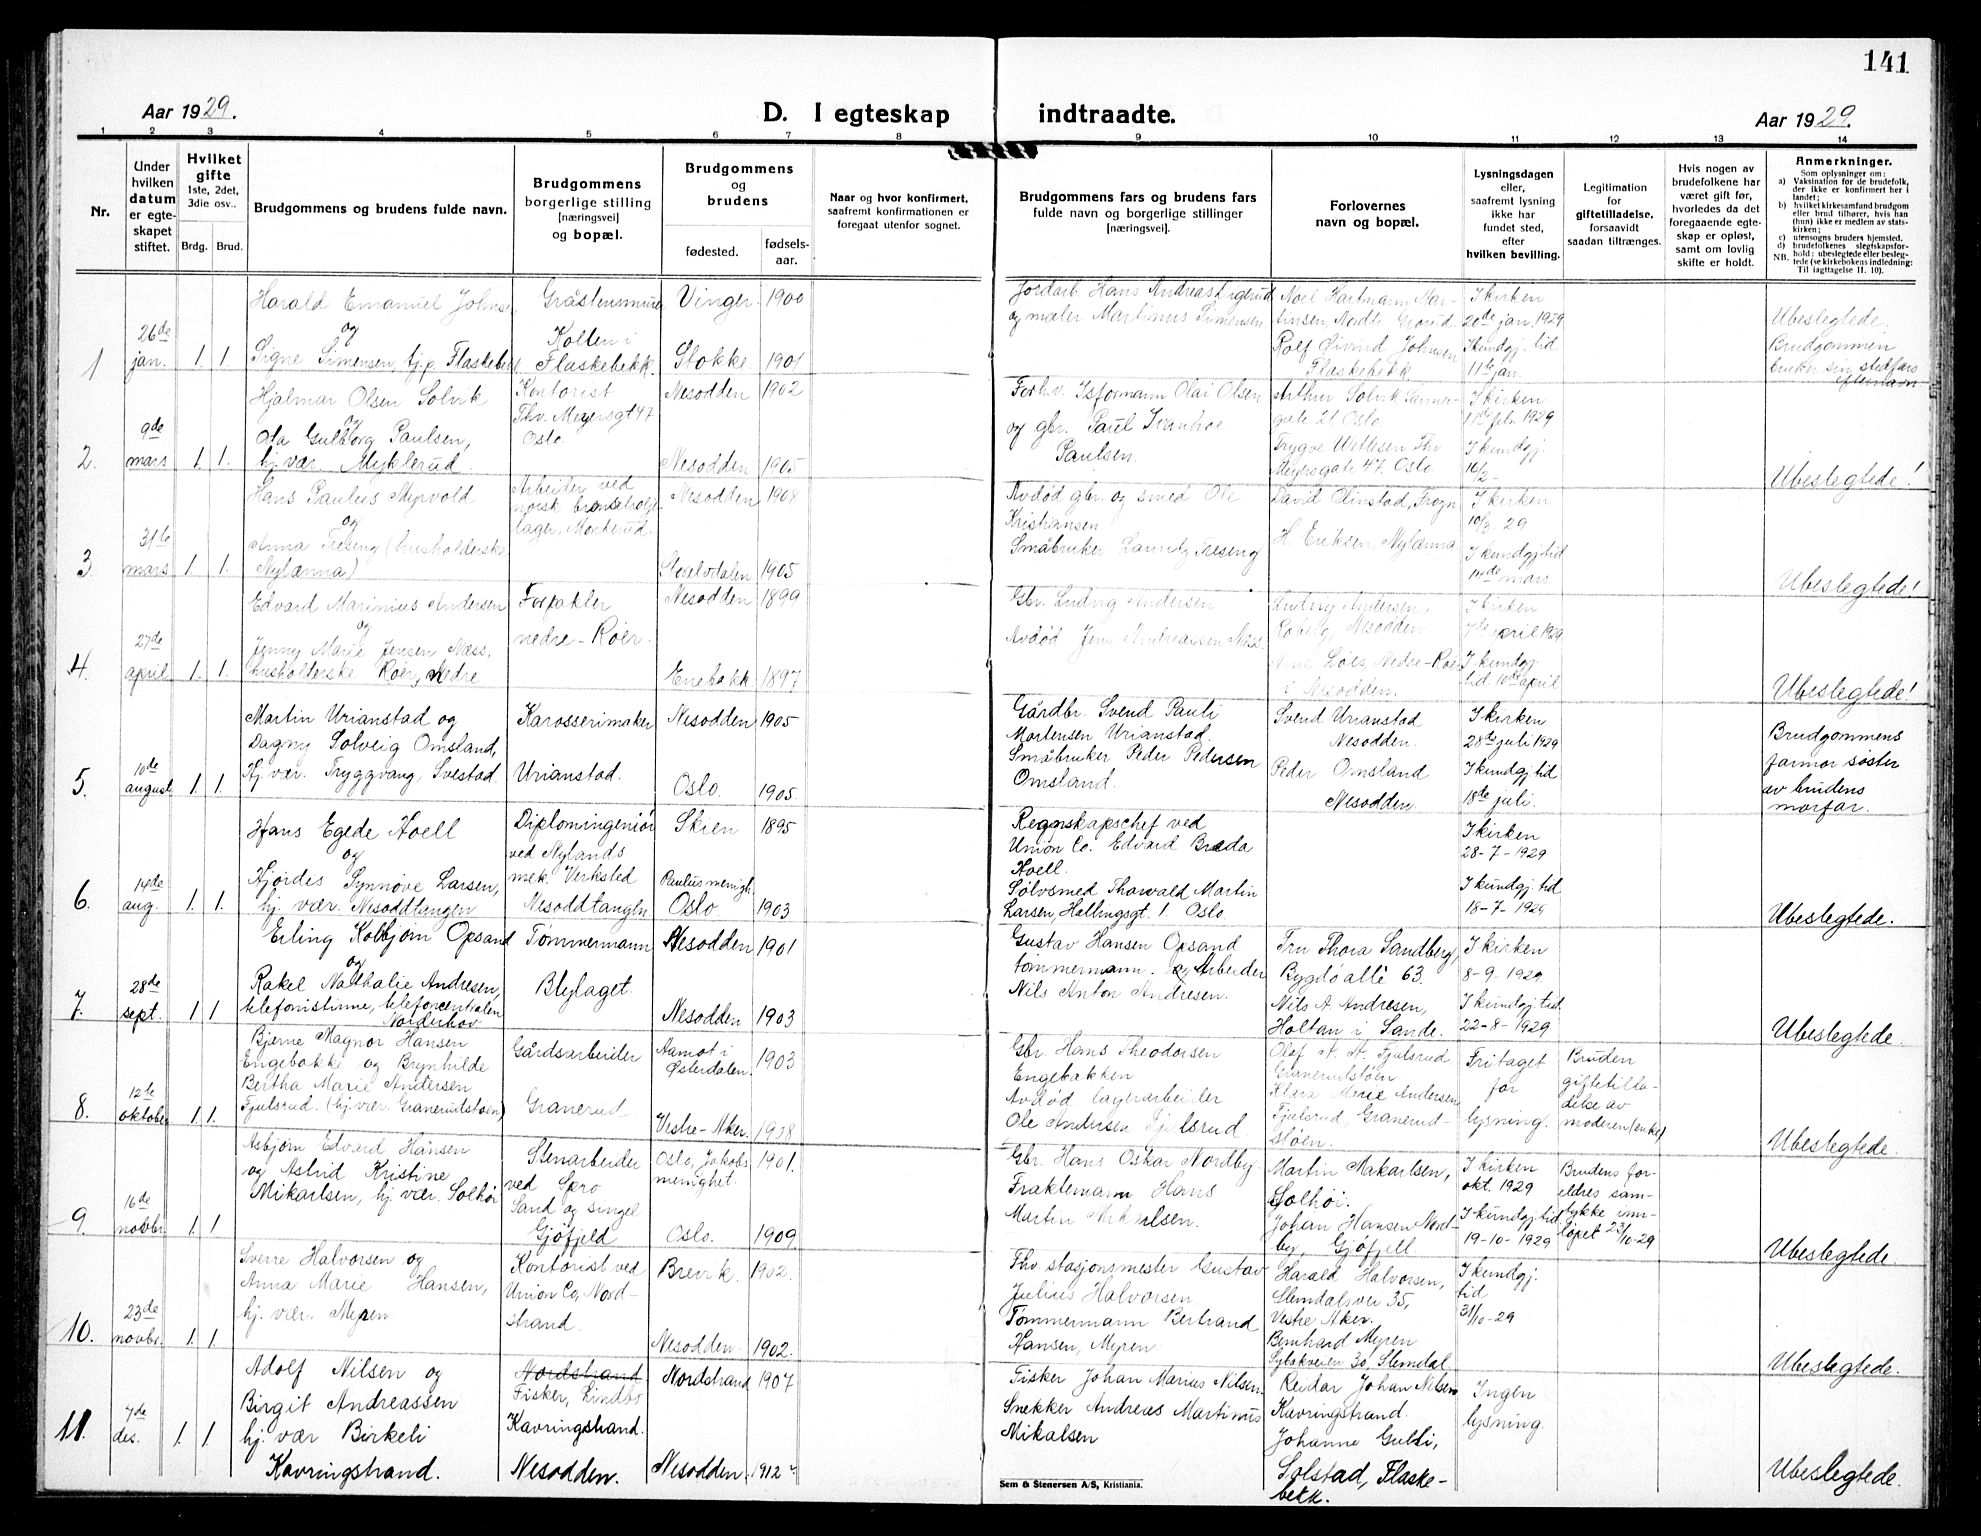 141
Aar 1929.
D. I egteskap indtraadte.
Aar 1929.
1 2 3 4 5 6 7 8 9 10 11 12 13 14
Nr.
Under hvilken datum er egteskapet stiftet.
Hvilket gifte
1ste, 2det, 3die osv..
Brdg. Brud.
Brudgommens og brudens fulde navn.
Brudgommens borgerlige stilling [næringsvei] og bopæl.
Brudgommens og brudens
fødested.
fødselsaar.
Naar og hvor konfirmert, saafremt konfirmationen er foregaat utenfor sognet.
Brudgommens fars og brudens fars fulde navn og borgerlige stillinger [næringsvei].
Forlovernes navn og bopæl.
Lysningsdagen eller, saafremt lysning ikke har fundet sted, efter hvilken bevilling.
Legitimation for giftetilladelse, forsaavidt saadan tiltrænges.
Hvis nogen av brudefolkene har været gift før, hvorledes da det foregaaende egteskap er opløst, samt om lovlig skifte er holdt.
Anmerkninger.
Som oplysninger om:
a) Vaksination for de brudefolk, der ikke er konfirmert her i landet;
b) hvilket kirkesamfund brudgom eller brud tilhører, hvis han (hun) ikke er medlem av statskirken;
c) utensogns bruders hjemsted.
d) brudefolkenes slegtskapsforhold: ubeslegtede eller beslegtede (se kirkebokens indledning: Til iagttagelse II. 10).
NB.
1
26de jan.
1. 1.
Harald Emanuel
og
Signe Simensen, tj.p. Flaskebekk
Kolten i
Flaskebekk.
Vinger 1900
Stokke 1901
Jordarb. Hans Andreas
og maler Martinus Simensen
Rolf Øivind Johnsen
Flaskebekk
I kirken
20de jan. 1929
I kundgj. tid
11te jan.
Ubeslegtede.
Brudgommen
bruker sin stedfars
efternavn
2.
9de mars
1. 1.
Hjalmar Olsen Solvik
og
Gulborg Paulsen,
hj. vær. Myklerud.
Kontorist
Thv. Meyersgt 47
Oslo.
Nesodden 1902
Nesodden 1905
Forhv. Isformann Olai Olsen
og gbr. Paul Ivanhoe
Paulsen.
Arthur Solvik
gate 21, Oslo.
Trygve Wetlesen Thv
Meyersgate 47. Oslo.
I kirken
febr. 1929
I kundgj.
16/2 -
Ubeslegtede!
3.
31te mars
1. 1.
Hans Paulus Myrvold
og
Anna Treseng (husholderske
Nylænna)
Arbeider ved
norsk
lager,
Nesodden 1908
1905
Avdød gbr. og smed Ole
Kristiansen
Småbruker Lauritz Treseng
David Olmstad, Frogn
H. Eriksen, Nylænna
I kirken
10/3 29
I kundgj tid
mars
Ubeslegtede!
4.
27de april
1. 1.
Edvard Marinius Andersen
og
Jenny Marie Jensen Næss,
husholderske Roer, Nedre
Forpakter
nedre-Roer.
Nesodden 1899
Enebakk 1897
Gbr. Ludvig Andersen
Avdød Jens Andreassen Næss
Ludvig Andersen,
Nesodden
Nedre-Roer
i Nesodden.
I kirken
april 1929
I kundgj.
tid 10de april
Ubeslegtede!
5.
10de august
1. 1.
Martin Urianstad og
Dagny Solveig Omsland,
Hj. vær. Tryggvang, Svestad.
Karosserimaker
Urianstad.
Nesodden 1905
Oslo. 1905.
Gårdbr. Svend Pauli
Mortensen Urianstad.
Småbruker Peder Pedersen
Omsland.
Svend Urianstad
Nesodden.
Peder Omsland
Nesodden
I kirken
28de juli 1929
I kundgj tid
18de juli.
Brudgommens
farmor søster
av brudens
morfar.
6.
14de aug.
1. 1.
Hans Egede Hoell
og
Hjørdis Synnøve Larsen,
hj. vær. Nesoddtangen
Diplomingeniør
ved Nylands
mek. Verksted
Nesoddtangen
Skien 1895
Paulus menigh.
Oslo 1903
Regnskapschef ved
Union Co. Edvard Breda
Hoell.
Sølvsmed Thorvald Martin
Larsen, Hellingsgt. 1. Oslo.
I kirken
28-7-1929
I kundgj. tid
18-7-1929
Ubeslegtede.
7.
28de sept.
1 1
Erling Kolbjørn Opsand
og
Rakel Nathalie Andresen,
telefonistinne, telefoncentralen
Norderhov
Tømmermann
Blylaget.
Nesodden 1901
Nesodden 1903
Gustav Hansen Opsand
tømmermann. Arbeider
Nils Anton Andresen.
Fru Thora Sandberg,
Bygdø allè 63.
Nils A. Andresen,
Holtan i Sande.
I kirken
8-9-1929
I kundgj tid.
22-8-1929
Ubeslegtede.
8.
12te oktober
1. 1.
Bjerne Magnor Hansen
Engebakke og Brynhilde
Bertha Marie Andersen
Fjulsrud. (hj. vær. Granerudstøen)
Gårdsarbeider
Granerud.
Aamot i
Østerdalen. 1903
Vestre-Aker. 1908
Gbr. Hans Theodorsen
Engebakken
Avdød lagerarbeider
Ole Andersen Fjulsrud
Olaf A. A. Fjulsrud
Granerudstøen
Klara Marie Andersen
Fjulsrud, Granerud-
støen.
Fritaget
for
lysning.
Bruden
giftetilla-
delse av
moderen (enke)
Ubeslegtede.
9.
16de novbr.
1 1
Asbjørn Edvard Hansen
og Astrid Kristine
Mikarlsen, hj. vær. Solhøi
Stenarbeider
ved Spro
Sand og singel
Gjøfjeld
Oslo, Jakobs
menighet. 1901.
Oslo. 1909.
Gbr. Hans Oskar Nordby.
Fraktemann Hans
Martin
Martin Makarlsen,
Solhøi.
Johan Hansen Nord-
by, Gjøfjell.
I kirken
okt. 1929
I kundgj tid
19-10-1929
Brudens for-
eldres sam-
tykke inn-
løpet 23/10-29
Ubeslegtede.
10.
23de novbr.
1. 1.
Sverre Halvorsen og
Anna Marie Hansen,
hj. vær. Myren
Kontorist ved
Union Co, Nord-
strand.
Brevik. 1902.
Nesodden 1902.
Fhv stasjonsmester Gustav
Julius Halvorsen.
Tømmermann Bertrand
Hansen, Myren
Harald Halvorsen,
Slemdalsvei 35,
Vestre Aker.
Bernhard Myren
30, Slemdal
I kundgj.
tid
31/10-29
Ubeslegtede.
11.
7de des.
1. 1.
Adolf Nilsen og
Birgit Andreassen
hj. vær Birkeli
Kavringstrand.
Nordstrand
Fisker, Lindbo
Kavringstrand.
Nesodden.
Nordstrand 1907
Nesodden. 1912
Fisker Johan Marius Nilsen.
Snekker Andreas Martinus
Mikalsen
Reidar Johan Nilsen
Kavringstrand.
Johanne Gulli,
Solstad, Flaske-
bekk.
Ingen
lysning.
Ubeslegtede.
Sem & Stenersen A/S, Kristiania.